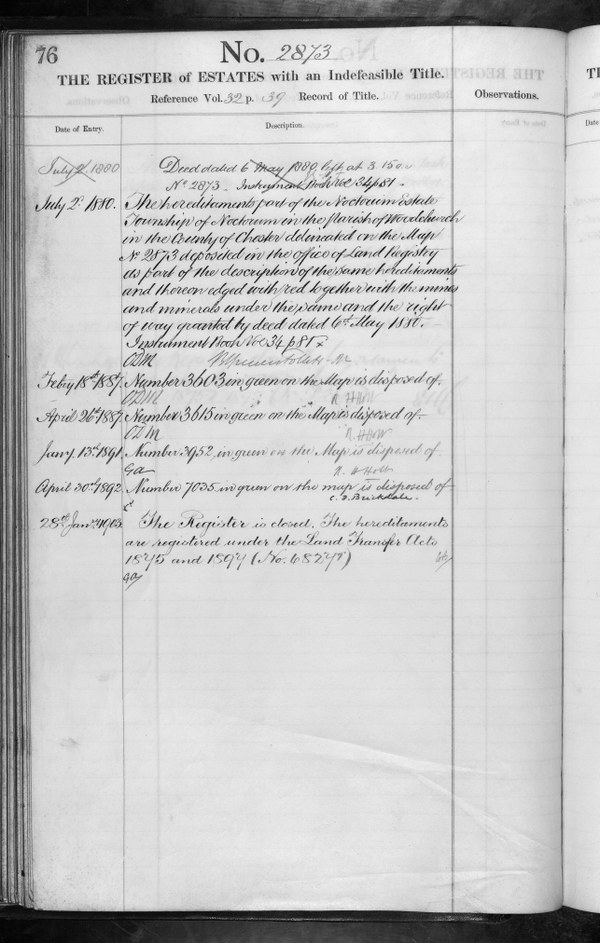 76
No. 2873
THE REGISTER of ESTATES with an Indefeasible Title.
Reference Vol. 32 p. 39 Record of Title.
Observations.
Date of Entry.
Description.
July 2d 1880
Deed dated 6 May 1880 left at 3.15
No 2873 - Instrument Book Vol 34 p 81 -
July 2d 1880.
The hereditaments part of the Noctorum Estate
Township of Noctorum in the parish of Woodchurch
in the County of Chester delineated on the Map
No 2873 deposited in the office of Land Registry
as part of the description of the same hereditaments
and thereon edged with red together with the mines
and minerals under the same and the right
of way granted by deed dated 6th May 1880.
Instrument Book Vol 34 p 81
ODM
Feby 18th 1887.
Number 3603 in green on the Map is disposed of.
ODM R H Holt
April 26th 1887.
Number 3615 in green on the Map is disposed of -
ODM R H Holt
Jany. 13th 1891.
Number 3952 in green on the Map is disposed of
Ga R H Holt
April 30th 1892.
Number 7035 in green on the map is disposed of
C. I. Brickdale.
28th Jany 1903.
The Register is closed. The hereditaments
are registered under the Land Transfer Acts
1875 and 1897 (No. 68271)